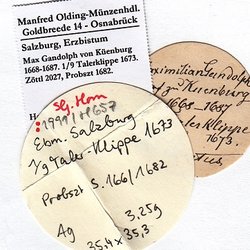 Manfred Olding-Münzenhdl.
Goldbreede 14 - Osnabrück
Salzburg, Erzbistum
Max Gandolph von Küenburg
1668-1687. 1/9 Talerklippe 1673.
Zöttl 2027, Probszt 1682.
Slg. Horn
1999/
Ebm. Salzburg
1/9 Taler-Klippe 1673
Probszt S. 166/1682
Ag 3,25g
35,4 x 35,3
Kuenburg
1668-1687
Klippe
1673.